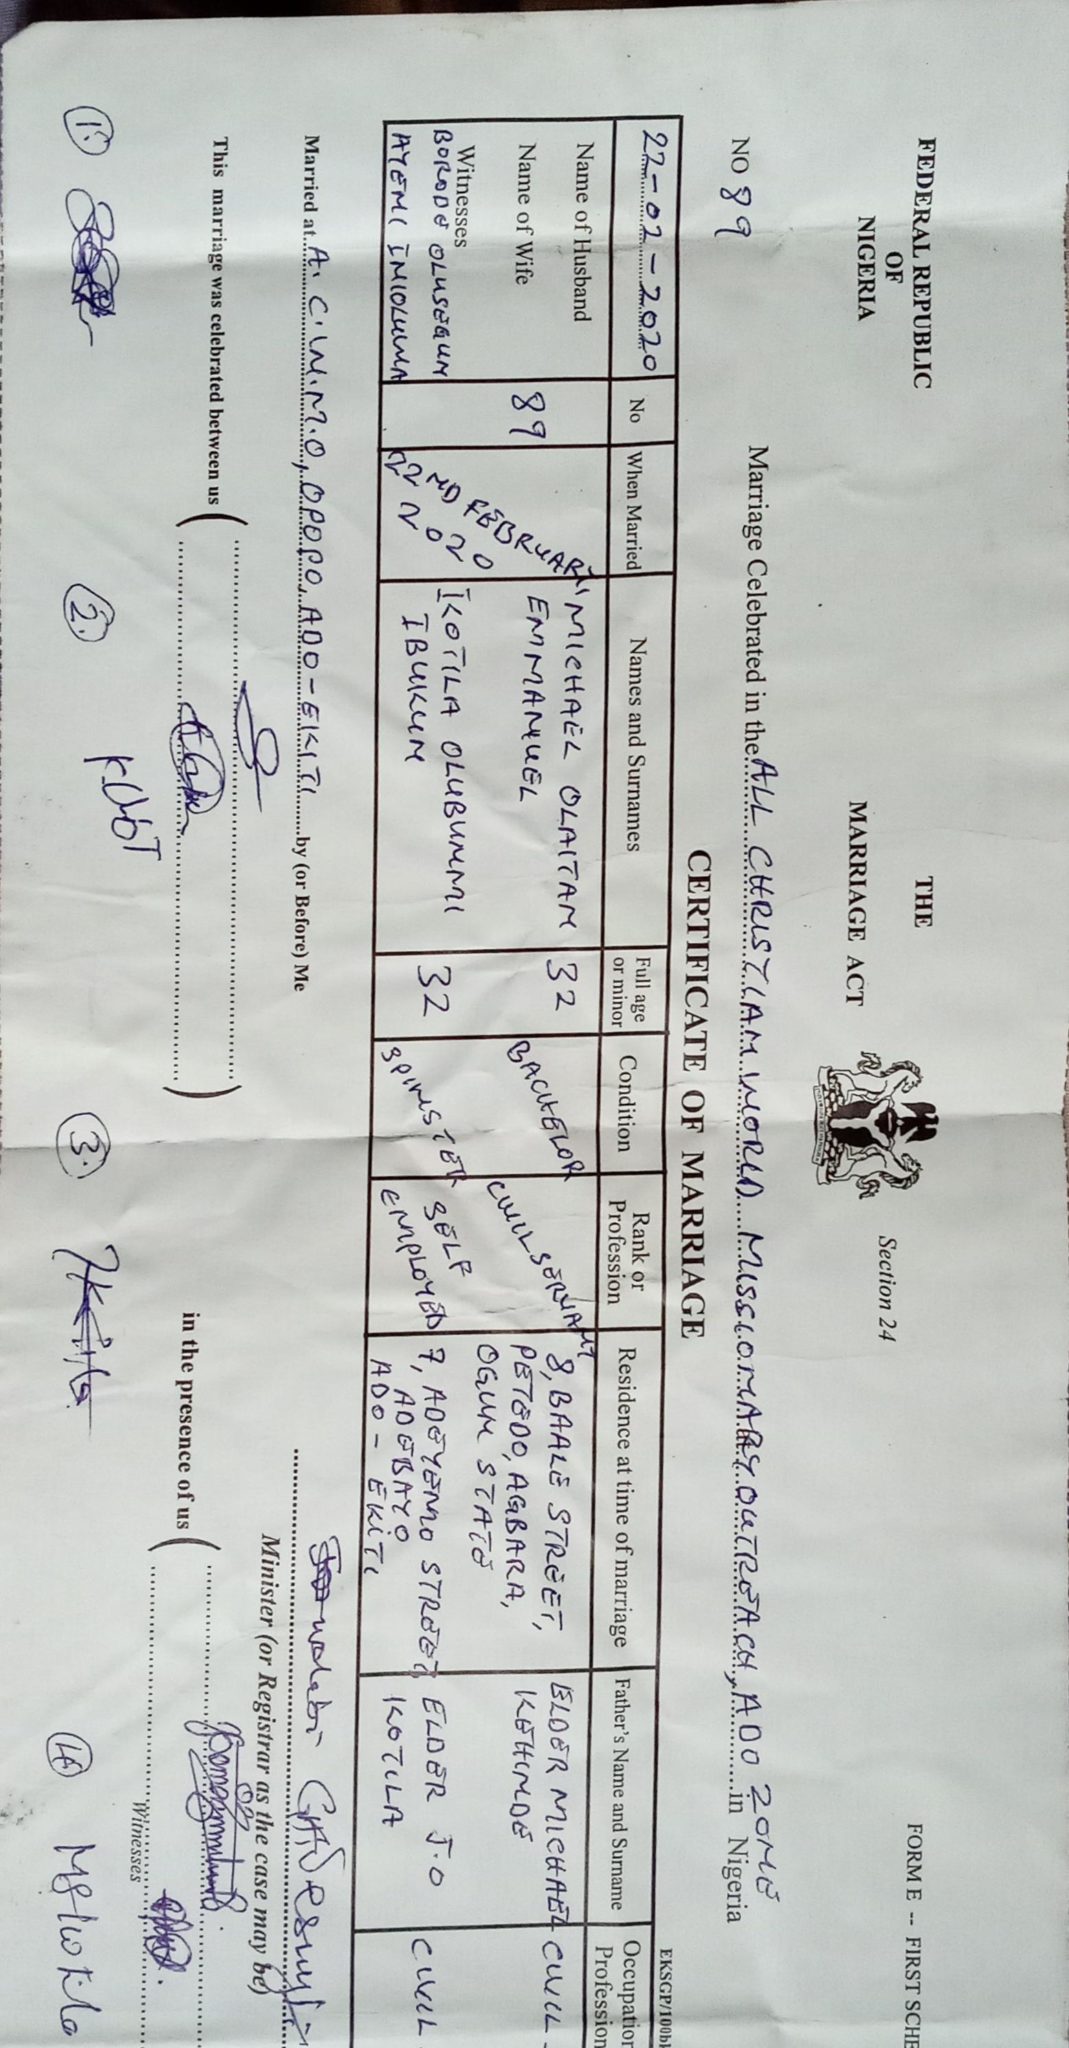 FEDERAL REPUBLIC
OF
NIGERIA
THE
MARRIAGE ACT
Section 24
FORM E -- FIRST SCHE
NO 89
Marriage Celebrated in the ALL CHRISTIAN WORLD MISSIONARY OUTREACH, ADO ZONE in Nigeria
CERTIFICATE OF MARRIAGE
EKSGP/100bk
22-02-2020
No
When Married
Names and Surnames
Full age or minor
Condition
Rank or Profession
Residence at time of marriage
Father's Name and Surname
Occupation Profession
Name of Husband
Name of Wife
89
22ND FEBRUARY,
2020
MICHAEL OLAITAN
EMMANUEL
32
BACHELOR
CIVIL SERVANT
8, BAALE STREET,
PETEDO, AGBARA,
OGUN STATE
ELDER MICHAEL
KEHINDE
CIVIL
Witnesses
BORODE OLUSEGUN
AYENI INIOLUWA
IKOTILA OLUBUNMI
IBUKUN
32
SPINSTER
SELF
EMPLOYED
7, ADEYEMO STREET,
ADEBAYO
ADO-EKITI
ELDER J.O
IKOTILA
CIVIL
Married at A.C.W.M.O, OPOPO, ADO-EKITI by (or Before) Me
Minister (or Registrar as the case may be)
This marriage was celebrated between us
in the presence of us
Witnesses
1.
2.
3.
4.